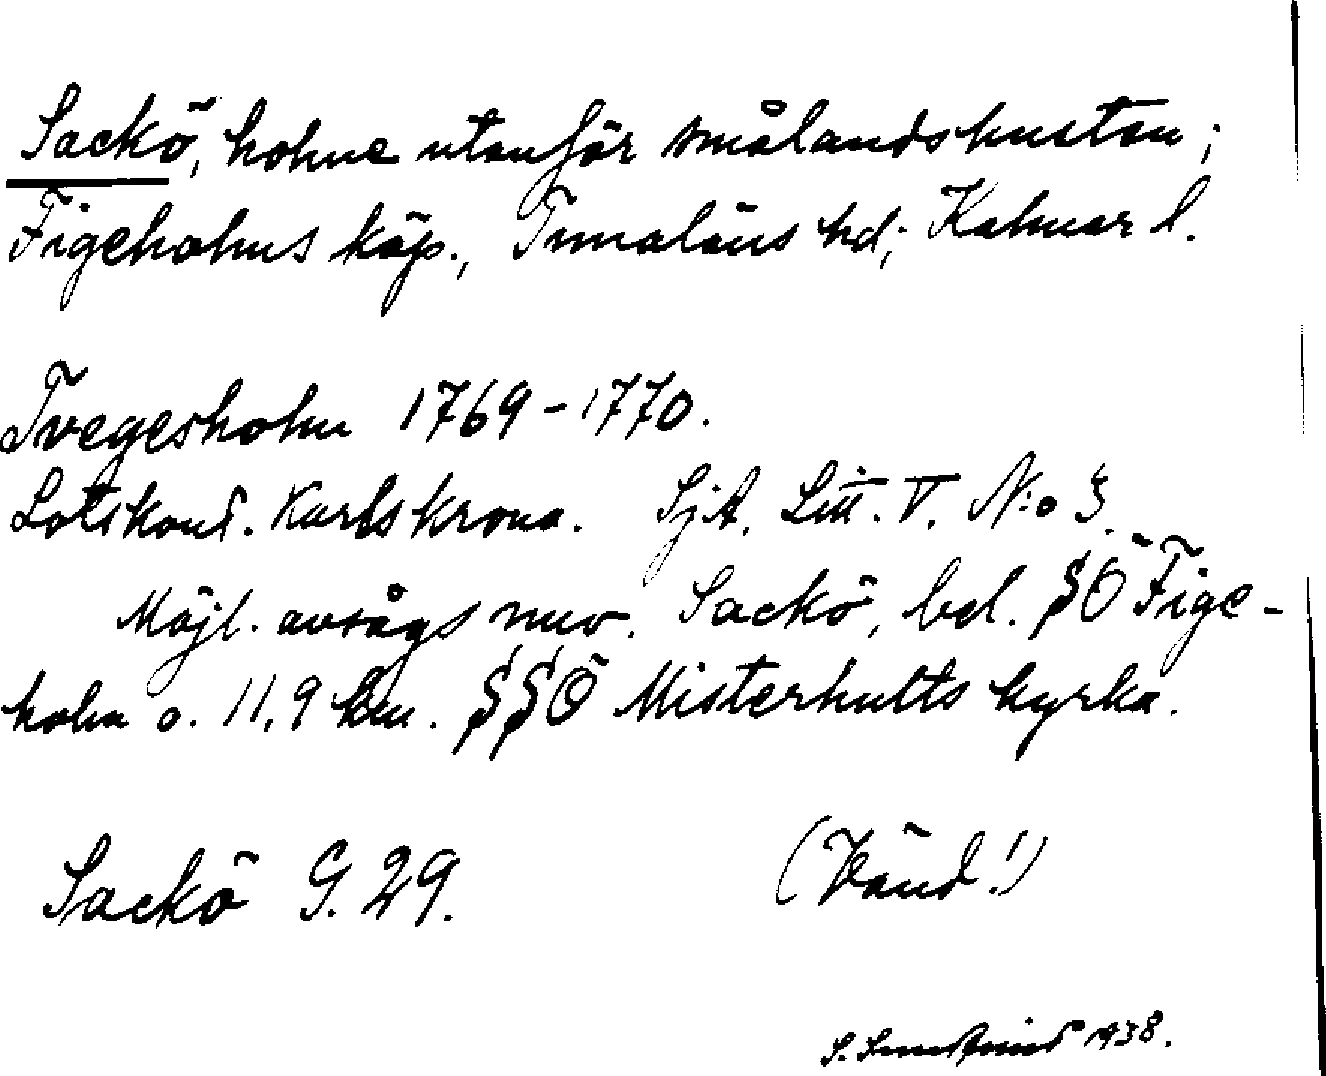 Sackö, holme utanför smålandskusten;
Figeholms köp., Tunaläns hd; Kalmar l.
Tvegesholm 1769-1770.
Lotskont. Karlskrona. SjA. Litt. V. N:o 3.
Möjl. avsågs nuv. Sackö, bel. SÖ Fige-
holm o. 11,9 km. SSÖ Misterhults kyrka.
Sackö G. 29.
(Vänd!)
S. 1938.